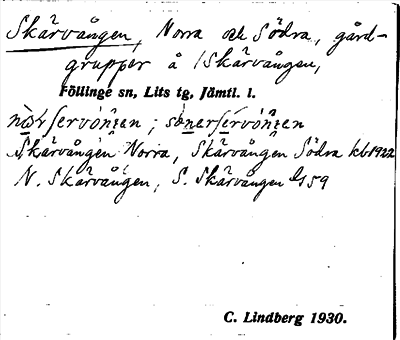 Skärvången, Norra och Södra, gård-
grupper å Skärvången,
Föllinge sn, Lits tg, Jämtl. l.
Skärvången Norra, Skärvången Södra kb 1922
N. Skärvången, S. Skärvången 59
C. Lindberg 1930.